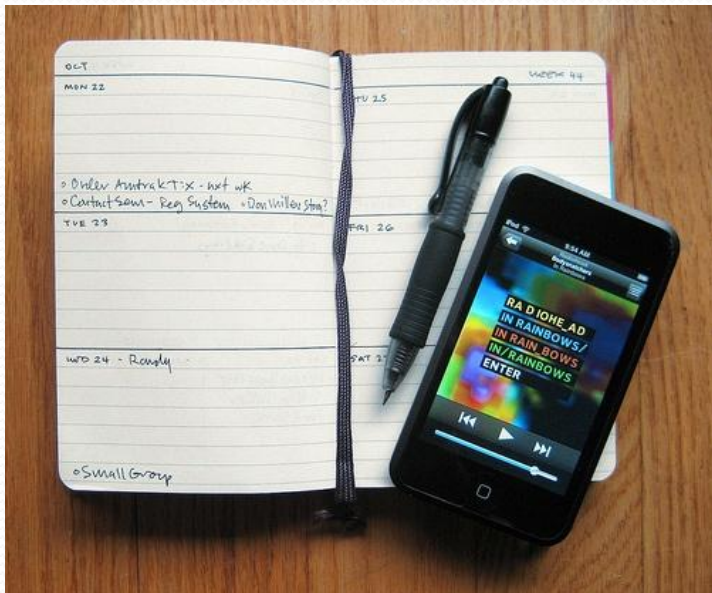 OCT
MON 22
o Order Amtrak Tix - nxt wk
o Contact Sem - Reg System
TUE 23
WED 24 - Randy
o Small Group
WEEK 44
25
FRI 26
SAT
iPod
9:54 AM
Radiohead
Bodysnatchers
In Rainbows
RA D IOHE_AD
IN RAINBOWS/
IN RAIN_BOWS
IN/RAINBOWS
ENTER